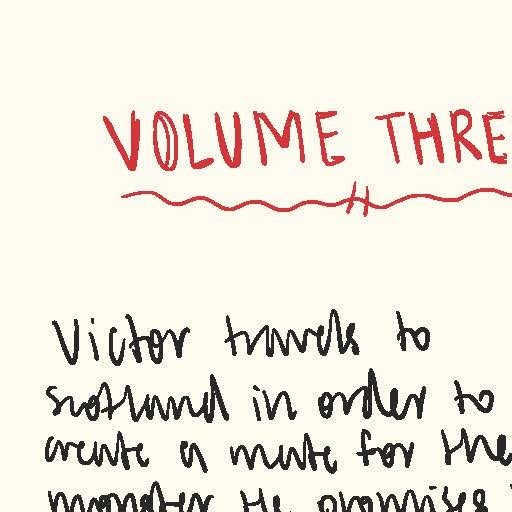 VOLUME THRE
Victor travels to
scotland in order to
create a mate for the
monster. He promises